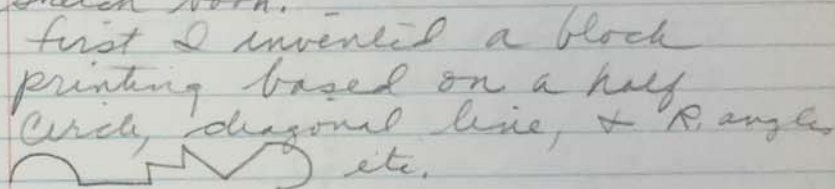 sketch book.
first I invented a block
printing based on a half
circle, diagonal line, + R. angles
etc.